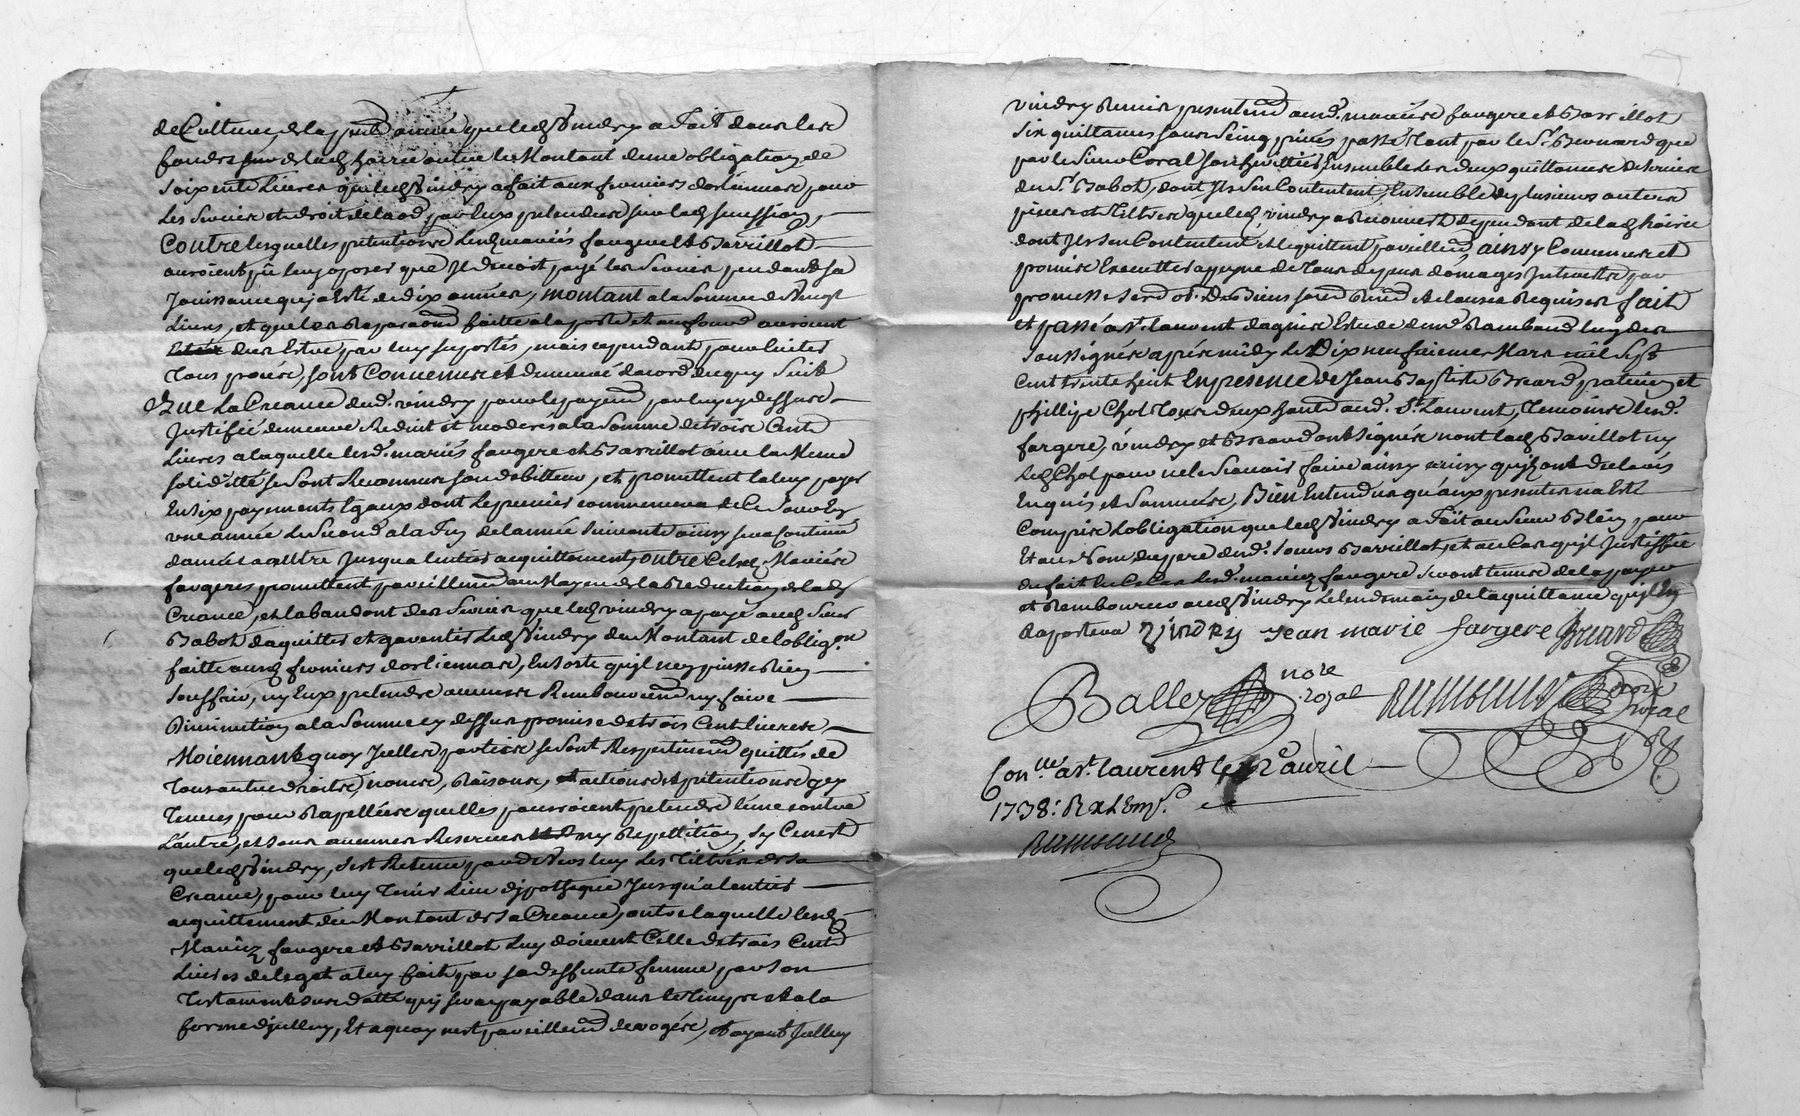 de Cultures, de la pnte année que led Vindry a fait dans les
fonds de lad hoirie outre le Montant d'une obligation de
Soixente Livres qu'il led Vindry a fait aux fermiers d'orliennas pour
Les Servis et droit de laod par Eux pretendus sur lad succession,
Contre lesquelles pretentions Lesd mariés fargere et Barrillot
auroient pû luy oposer que Il devoit payé les Servis pendant sa
Jouissance qui a Esté de dix années, montant a la Somme de Vingt
Livres, et que les Reparaons faitte a la porte et au four auroient
deu Estre par luy suportés, mais cependant pour Eviter
Tous procés, sont Convenus et demeuré dacord de ce quy Suit
Que La Creance dud. vindry pour le payemt par luy cy dessus
Justifié demeure Reduit et moderés a la Somme de trois Cents
Livres a laquelle lesd. mariés fargere et Barrillot avec la Meme
solidité se sont Reconnus son debitteurs, et promettent la luy payer
En six payements Egaux dont Le premier commencera de Ce Jour En
une année Le Second a la fin de l'année Suivante ainsy sera continué
dannée a aultre Jusqua lentier acquittement, outre Ce lesd. Mariés
fargeres promettent pareillemt au Moyen de la Reduction de lad
Creance, et labandont des Servis que led vindry a payé aud Sieur
Babot daquitter et garentir Led Vindry du Montant de l'oblig.on
faitte ausd fermiers dorliennas, En sorte qu'il ne puisse Rien
Souffrir, ny Eux pretendre aucuns Remboursemt ny faire
Diminution a la Somme cy dessus promise de trois Cent livres,
Moiennant quoy Icelles parties se sont Respectivemt quittés de
Tous autre droits, noms, Raisons, et actions et pretentions cy
Tenues pour Rapellées quelles pourroient pretendre l'une contre
L'autre, et sans aucunes Reserves ny Repettition, Sy Ce n'est
que led Vindry, s'est Retenu pardevers luy Les Tiltres de sa
Creance, pour luy Tenir Lieu dipotheque Jusqu'a lentier
acquittement du Montant de sa Creance, outre laquelle lesd
Mariéz fargere et Barrillot Luy doivent Celle de trois Cents
Livres de leg et a luy fait par sa deffunte femme par son
Testament sus daté quy sera payable dans le Temps et a la
forme d'icelluy, Et a quoy n'est pareillemt derogés, Et ayant Icelluy
vindry Remis presentemt aud. mariés fargere et Barrillot
Six quittances sous Seing privés passé Tant par le Sr Bernard que
par le Sieur Coral Ensemble les deux quittances de Servis
du Sr Babot, dont Ils s'en Contentent, Ensemble de plusieurs autres
pieces et Tiltres que led vindry a Reconnus dependant de lad hoirie
dont Ils s'en Contentent et le quittent pareillemt, ainsy Convenus et
promis Executter a peyne de Tous depens domages Interests par
promesses serd ob. de Biens soumd Renond et clauses Requises fait
et passé a St. laurent dagnis Estude dud Rambaud luy des
Soussignés aprés midy le Dix neufvieme Mars mil Sept
Cent trente huit En presence de Jean Baptiste Breard, praticien et
phillipe Chol Tous deux habts aud. St. Laurent, Temoins lesd.
fargere, vindry et Breard ont signés non lad Barillot ny
led Chol pour ne le Scavoir faire ainsy qu'ils ont declarés
Enquis et Sommés, Bien Entendu qu'aux presentes na Esté
Compris L'obligation que led Vindry a fait au Sieur Bléin pour
Et au Nom du pere dud. Louis Barrillot, et au Cas qu'il Justiffie
du fait lesd. mariéz fargere seront tenus de la payer
et Rembourcer aud Vindry Le lendemain de la quittance qu'il En
Raportera Vindry jean marie fargere Breard
Balley nore royal Rambaud nore royal
Con.lle a St. laurent le 2e avril
1738: R
Rambaud